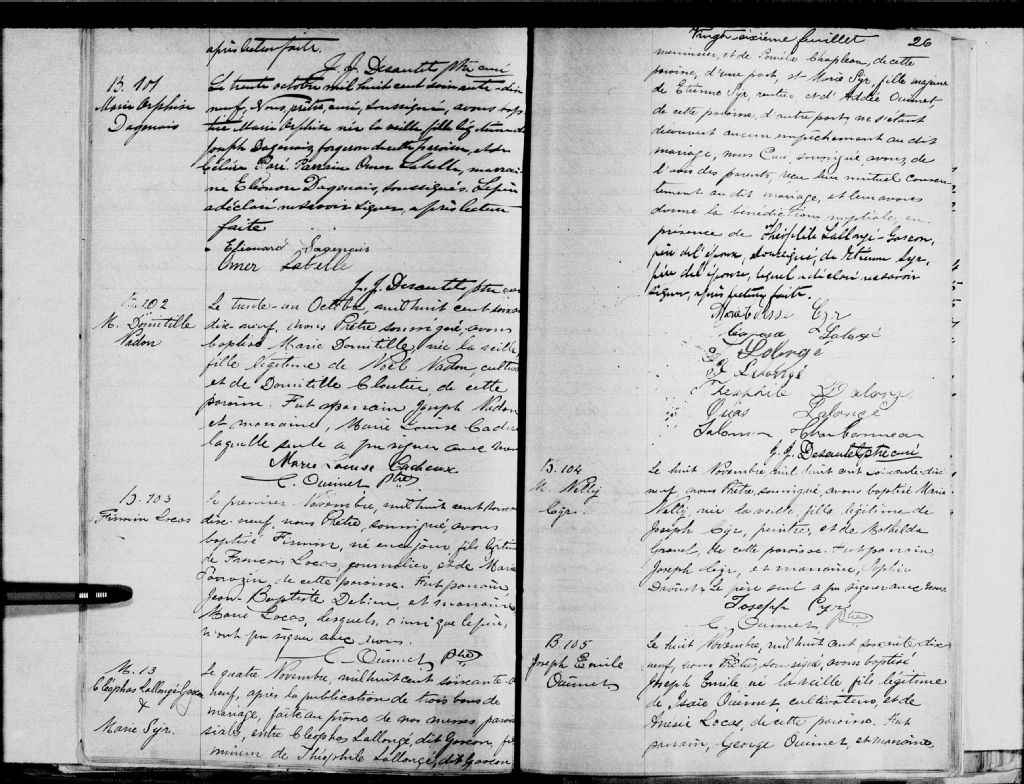 après lecture faite.
J. J. Desautels ptre curé
B. 101
Marie Orphise
Dagenais
Le trente octobre mil huit cent soixante-dix
neuf, Nous, prêtre, curé, soussigné, avons bap
tisé Marie Orphise née la veille fille légitime de
Joseph Dagenais, forgeron de cette paroisse, et de
Célina Paré. Parrain Omer Labelle, marrai
ne Eléonore Dagenais, soussignés. Le père
a déclaré ne savoir signer, après lecture
faite
Eléonard Dagenais
Omer Labelle
J. J. Desautels ptre curé
B. 102
M. Domitille
Nadon
Le trente-un Octobre, mil huit cent soixante
dix-neuf, nous Prêtre soussigné, avons
baptisé Marie Domitille, née la veille,
fille légitime de Noël Nadon, cultiv
et de Domitille Cloutier de cette
paroisse. Fut parrain Joseph Nadon
et marraine, Marie Louise Cadieu
laquelle seule a pu signer avec nous
Marie Louise Cadieux
C. Ouimet Ptre
B. 103
Firmin Locas
Le premier Novembre, mil huit cent soixan
dix-neuf, nous Prêtre, soussigné, avons
baptisé Firmin, né en ce jour, fils légitime
de François Locas, journalier, et de Marie
de cette paroisse. Fut parrain
Jean-Baptiste Debien, et marraine
Marie Locas, lesquels, ainsi que le père,
n'ont pu signer avec nous.
C. Ouimet Ptre
M. 13
Cléophas Lallongé-Gascon
&
Marie Syr.
Le quatre Novembre, mil huit cent soixante-d
neuf, après la publication de trois bans de
mariage, faite au prone de nos messes parois
siales, entre Cléophas Lallongé, dit Gascon, fils
mineur de Théophile Lallongé, dit Gascon
Vingt-sixième feuillet 26
menuisier, et de Pomèle Chapleau, de cette
paroisse, d'une part, et Marie Syr, fille majeure
de Etienne Syr, rentier et d'Addée Ouimet
de cette paroisse, d'autre part, ne s'étant
découvert aucun empêchement au dit
mariage, nous Curé, soussigné avons, de
l'avis des parents, reçu leur mutuel consen
tement au dit mariage, et leur avons
donné la bénédiction nuptiale, en
présence de Théophile Lallongé-Gascon,
père de l'époux, soussigné, de Etienne Syr,
père de l'épouse, lequel a déclaré ne savoir
signer, après lecture faite.
Cyr
Lalongé
Lalongé
Lalongé
Theophile Lalongé
Lalongé
Salomon Charbonneau
J. J. Desautels ptre curé
B. 104
M. Nelly
Cyr.
Le huit Novembre, mil huit cent soixante-dix
neuf, nous Prêtre, soussigné, avons baptisé Marie
Nelly, née la veille, fille légitime de
Joseph Cyr, peintre, et de Mathilda
Gravel, de cette paroisse. Fut parrain,
Joseph Cyr, et marraine, Sophie
Daoust. Le père seul a pu signer avec nous.
Joseph Cyr
C. Ouimet Ptre
B 105
Joseph Emile
Ouimet
Le huit Novembre, mil huit cent soixante-dix
neuf, nous Prêtre, soussigné, avons baptisé
Joseph Emile né la veille, fils légitime
de Isaïe Ouimet, cultivateur, et de
Locas de cette paroisse. Fut
parrain, George Ouimet, et marraine